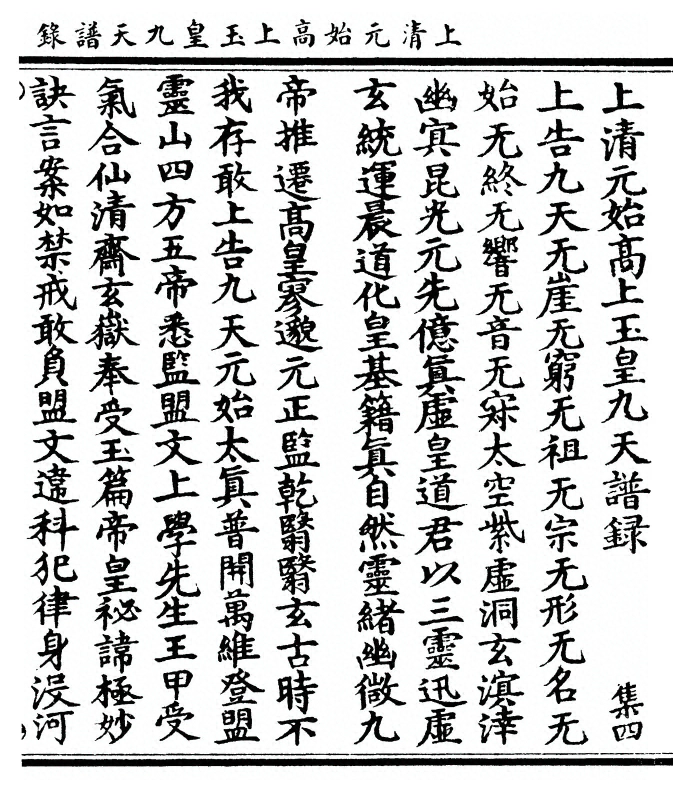 上清元始高上玉皇九天譜錄
上清元始髙上玉皇九天譜録
集四
上告九天无崖无窮无祖无宗无形无名无
始无終无響无音无㝥太空紫虛洞玄溟涬
幽冥昆光元先億眞虛皇道君以三靈迅虛
玄統運晨道化皇基籍眞自然靈緒幽微九
帝推遷髙皇寥邈元正監乾翳翳玄古時不
我存敢上告九天元始太眞普開萬維登盟
靈山四方五帝悉監盟文上學先生王甲受
氣合仙清齋玄嶽奉受玉篇帝皇祕諱極妙
訣言案如禁戒敢負盟文違科犯律身没河